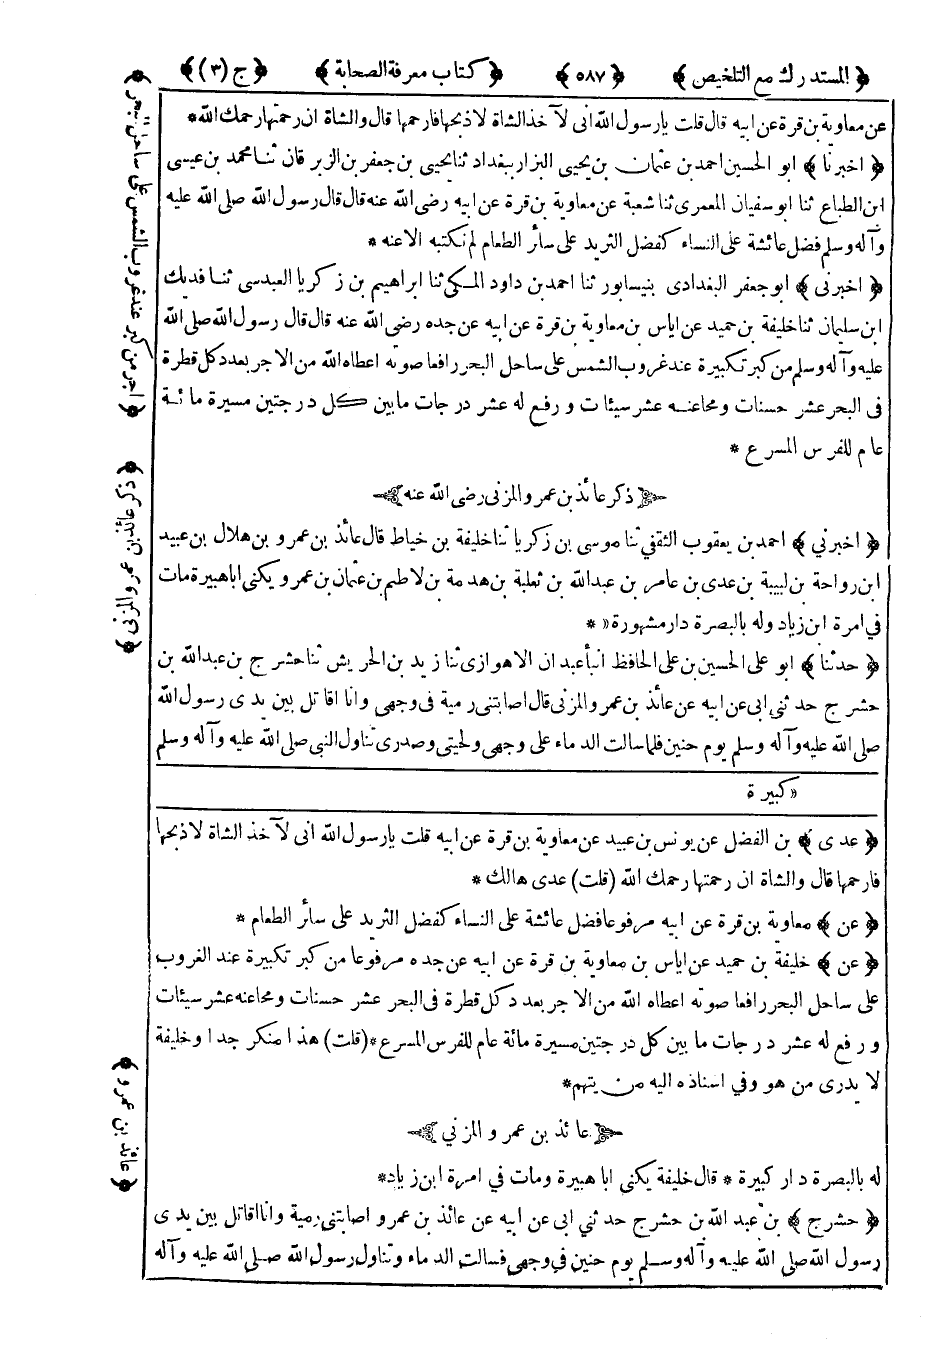 ﴿المستدرك مع التلخيص﴾ ﴿٥٨٧﴾ ﴿كتاب معرفة الصحابة﴾ ﴿ج (٣)﴾
عن معاوية بن قرة عن ابيه قال قلت يا رسول الله انى لآخذ الشاة لاذبحها فارحمها قال والشاة ان رحمتها رحمك الله *
﴿اخبرنا﴾ ابو الحسين احمد بن عثمان بن يحيى البزار ببغداد ثنا يحيى بن جعفر بن الزبر قان ثنا محمد بن عيسى
ابن الطباع ثنا ابو سفيان المعمرى ثنا شعبة عن معاوية بن قرة عن ابيه رضى الله عنه قال قال رسول الله صلى الله عليه
وآله وسلم فضل عائشة على النساء كفضل الثريد على سائر الطعام لم نكتبه الا عنه *
﴿اخبرنى﴾ ابو جعفر البغدادى بنيسابور ثنا احمد بن داود المكى ثنا ابراهيم بن زكريا العبدسى ثنا فديك
ابن سليمان ثنا خليفة بن حميد عن اياس بن معاوية بن قرة عن ابيه عن جده رضى الله عنه قال قال رسول الله صلى الله
عليه وآله وسلم من كبر تكبيرة عند غروب الشمس على ساحل البحر رافعا صوته اعطاه الله من الاجر بعدد كل قطرة
فى البحر عشر حسنات ومحا عنه عشر سيئات ورفع له عشر درجات ما بين كل درجتين مسيرة مائة
عام للفرس المسرع *
ذكر عائذ بن عمرو المزنى رضى الله عنه
﴿اخبرني﴾ احمد بن يعقوب الثقفي ثنا موسى بن زكريا ثنا خليفة بن خياط قال عائذ بن عمرو بن هلال بن عبيد
ابن رواحة بن لبيبة بن عدى بن عامر بن عبدالله بن ثعلبة بن هدمة بن لاطم بن عثمان بن عمرو يكنى ابا هبيرة مات
في امرة ابن زياد وله بالبصرة دار مشهورة« *
﴿حدثنا﴾ ابو على الحسين بن على الحافظ انبأ عبدان الاهوازى ثنا زيد بن الحريش ثنا حشرج بن عبدالله بن
حشرج حدثني ابى عن ابيه عن عائذ بن عمرو المزنى قال اصابتنى رمية فى وجهى وانا اقاتل بين يدى رسول الله
صلى الله عليه وآله وسلم يوم حنين فلما سالت الدماء على وجهى ولحيتى وصدرى تناول النبي صلى الله عليه وآله وسلم
« كبيرة
﴿عدى﴾ بن الفضل عن يونس بن عبيد عن معاوية بن قرة عن ابيه قلت يا رسول الله انى لآخذ الشاة لاذبحها
فارحمها قال والشاة ان رحمتها رحمك الله (قلت) عدى هالك *
﴿عن﴾ معاوية بن قرة عن ابيه مرفوعا فضل عائشة على النساء كفضل الثريد على سائر الطعام *
﴿عن﴾ خليفة بن حميد عن اياس بن معاوية بن قرة عن ابيه عن جده مرفوعا من كبر تكبيرة عند الغروب
على ساحل البحر رافعا صوته اعطاه الله من الاجر بعدد كل قطرة فى البحر عشر حسنات ومحا عنه عشر سيئات
ورفع له عشر درجات ما بين كل درجتين مسيرة مائة عام للفرس المسرع *(قلت) هذا منكر جدا وخليفة
لا يدرى من هو وفي اسناده اليه من يتهم *
عائذ بن عمرو المزني
له بالبصرة دار كبيرة * قال خليفة يكنى ابا هبيرة ومات في امرة ابن زياد *
﴿حشرج﴾ بن عبد الله بن حشرج حدثني ابى عن ابيه عن عائذ بن عمرو اصابتنى رمية وانا اقاتل بين يدى
رسول الله صلى الله عليه وآله وسلم يوم حنين في وجهى فسالت الدماء وتناول رسول الله صلى الله عليه وآله
﴿اجر من كبر عند غروب الشمس على ساحل البحر﴾
﴿ذكر عائذ بن عمرو المزنى﴾
﴿عائذ بن عمرو﴾